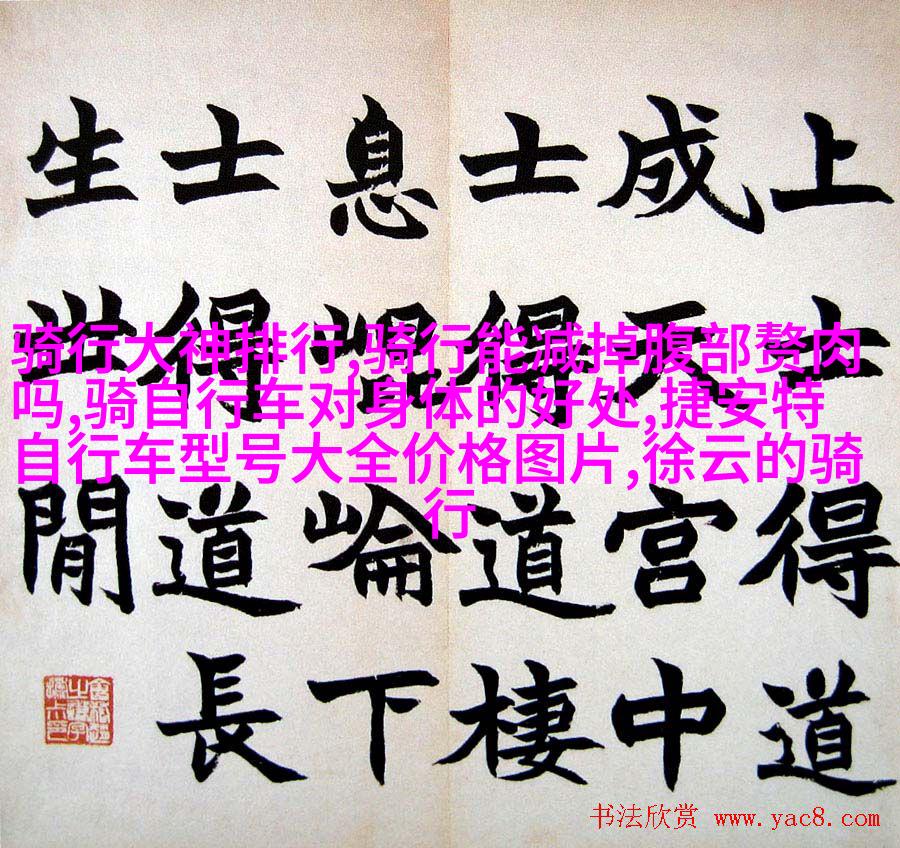 上士得道
成天宮中
士得道棲
息崐崘下
士得道長
生世閒
骑行大神排行,骑行能减掉腹部赘肉
吗,骑自行车对身体的好处,捷安特
自行车型号大全价格图片,徐云的骑
行
书法欣赏 www.yac8.com